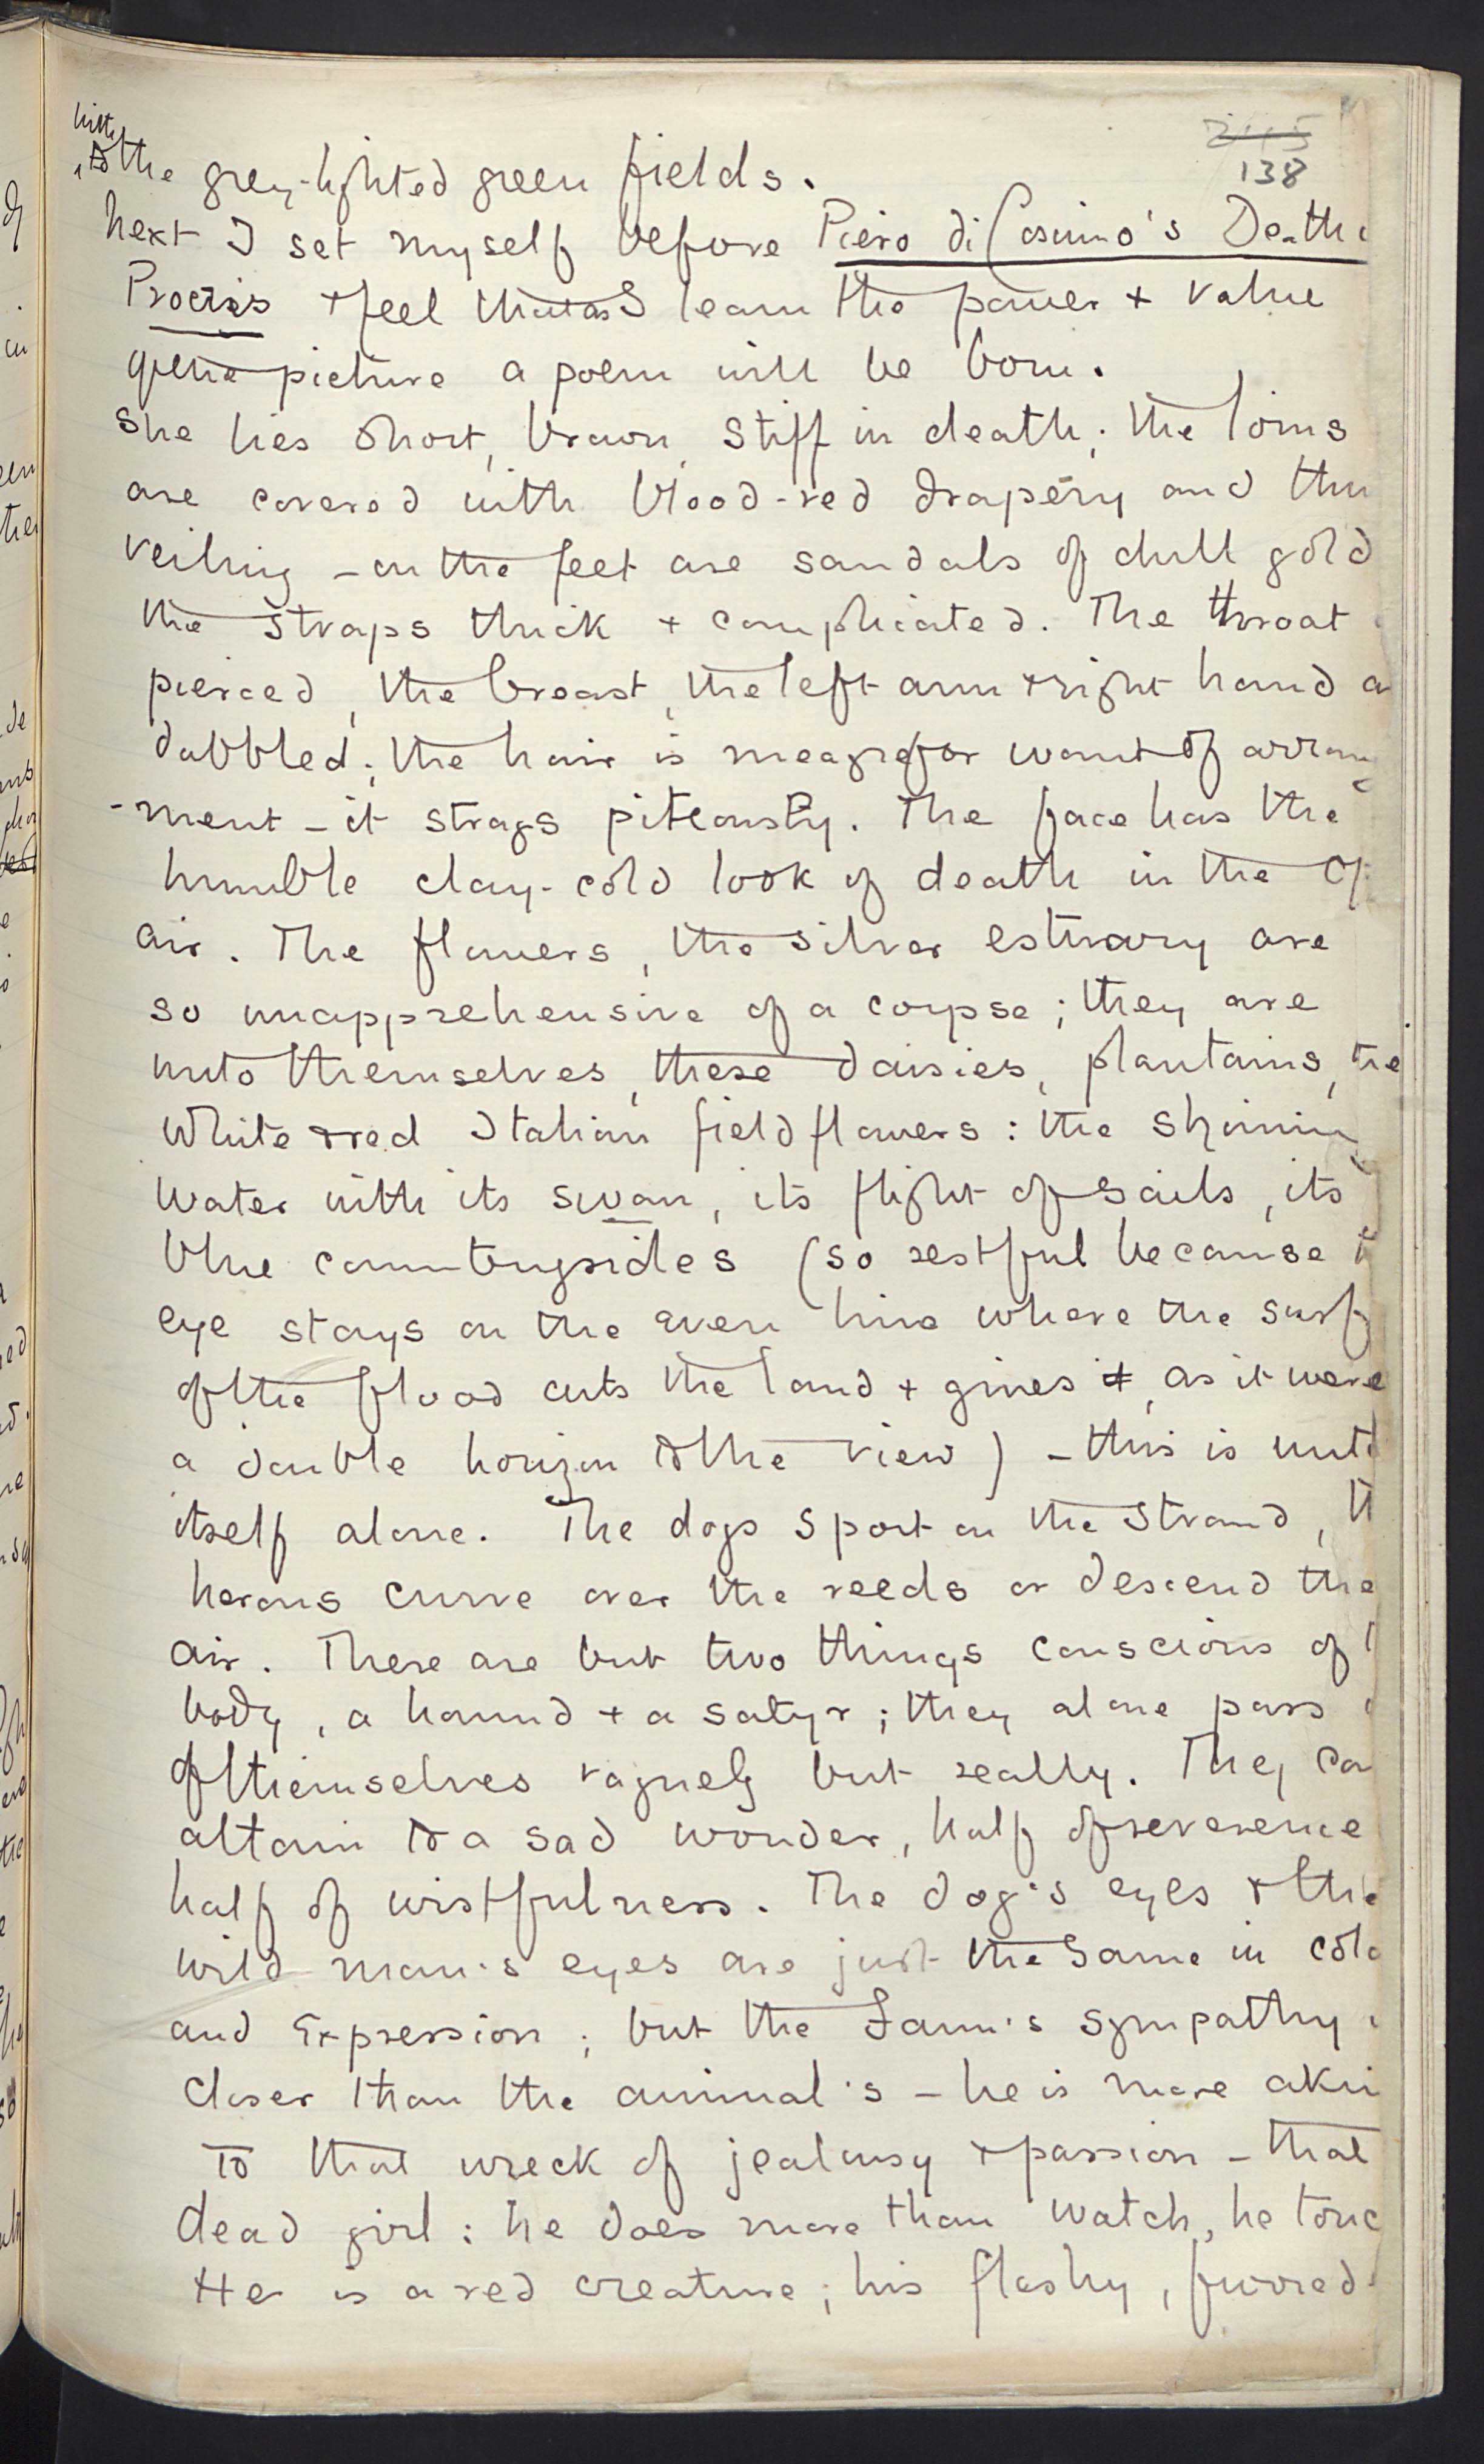 138
to the grey-lighted green fields.
Next I set myself before Piero di Cosimo's Death
Procris + feel that as I learn the power + value
of the picture a poem will be born.
She lies short, brown, stiff in death; the loins
are covered with blood-red drapery and thin
veiling - on the feet are sandals of dull gold
the straps thick + complicated. The throat
pierced, the breast, the left arm + right hand a
dabbled; the hair is meagre for want of arrang
-ment - it strays piteously. The face has the
humble clay-cold look of death in the op
air. The flowers, the silver estuary are
so unapprehensive of a corpse; they are
unto themselves, these daisies, plantains, the
white + red Italian field flowers: the shining
water with its swan, its flight of sails, its
blue countrysides (so restful because
eye stays on the even line where the surf
of the flood cuts the land + gives it, as it were
a double horizon to the view) - this is unto
itself alone. The dogs sport on the strand, th
herons curve over the reeds or descend the
air. There are but two things conscious of
body, a hound + a satyr; they alone pass
of themselves vaguely but really. They ca
attain to a sad wonder, half of reverence
half of wistfulness. The dog's eyes + the
wild man's eyes are just the same in colo
and expression; but the Faun's sympathy
closer than the animal's - he is more akin
to that wreck of jealousy + passion - that
dead girl: he does more than watch, he touc
He is a red creature; his fleshy, furred